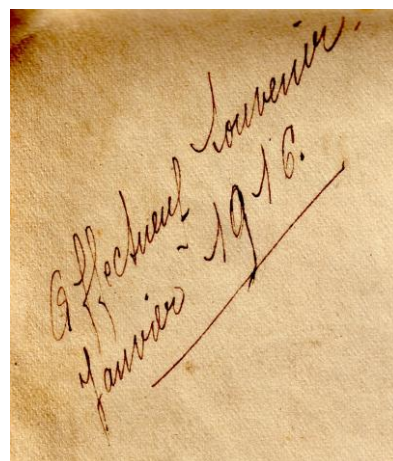 Affectueux Souvenir.
Janvier - 1916.